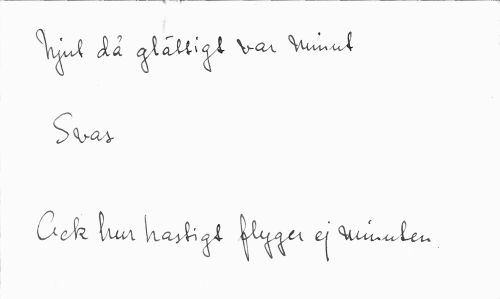 Njut då glättigt var minut
Svar
Ack hur hastigt flyger ej minuten